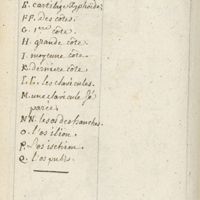 E. cartilage Xyphoide;
FF. des côtes.
G. 1ere côte.
H. grande côte
I. moyenne côte.
K. derniere côte.
L. L. les clavicules.
M. une clavicule sé
parée.
N N. les os des hanches.
O. l'os ilion.
P. l'os ischion.
Q. l'os pubis.